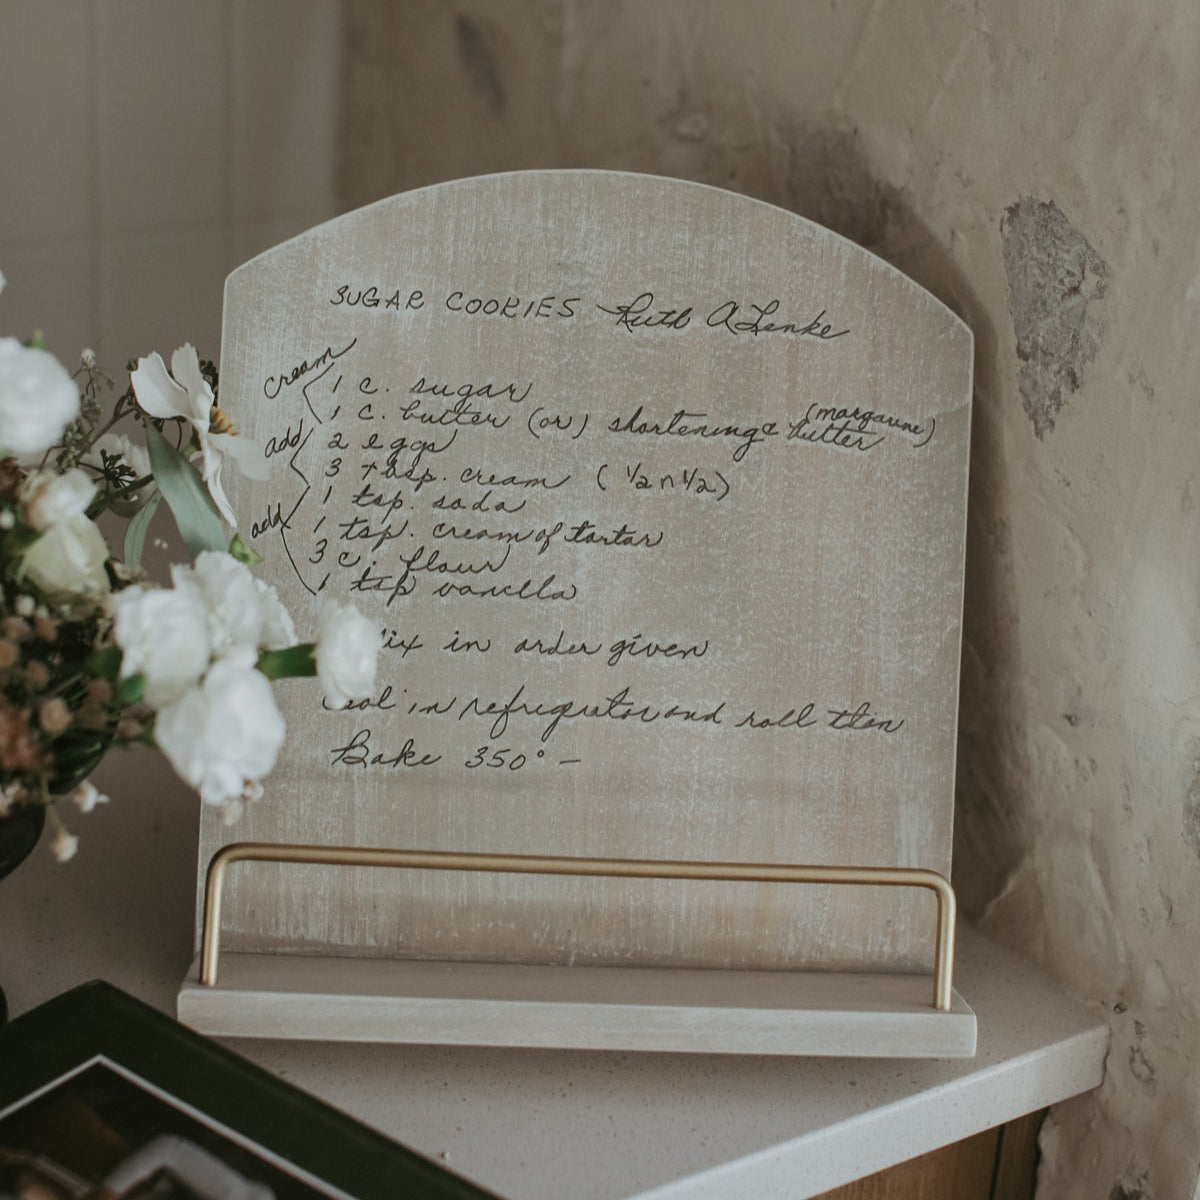 SUGAR COOKIES Ruth A Lenke
cream
1 c. sugar
(margarine)
1 c. butter (or) shortening & butter
add
2 eggs
3 tbsp. cream (1/2 n 1/2)
1 tsp. soda
add
1 tsp. cream of tartar
3 c. flour
1 tsp vanilla
ix in order given
ol in refrigerator and roll thin
Bake 350° –